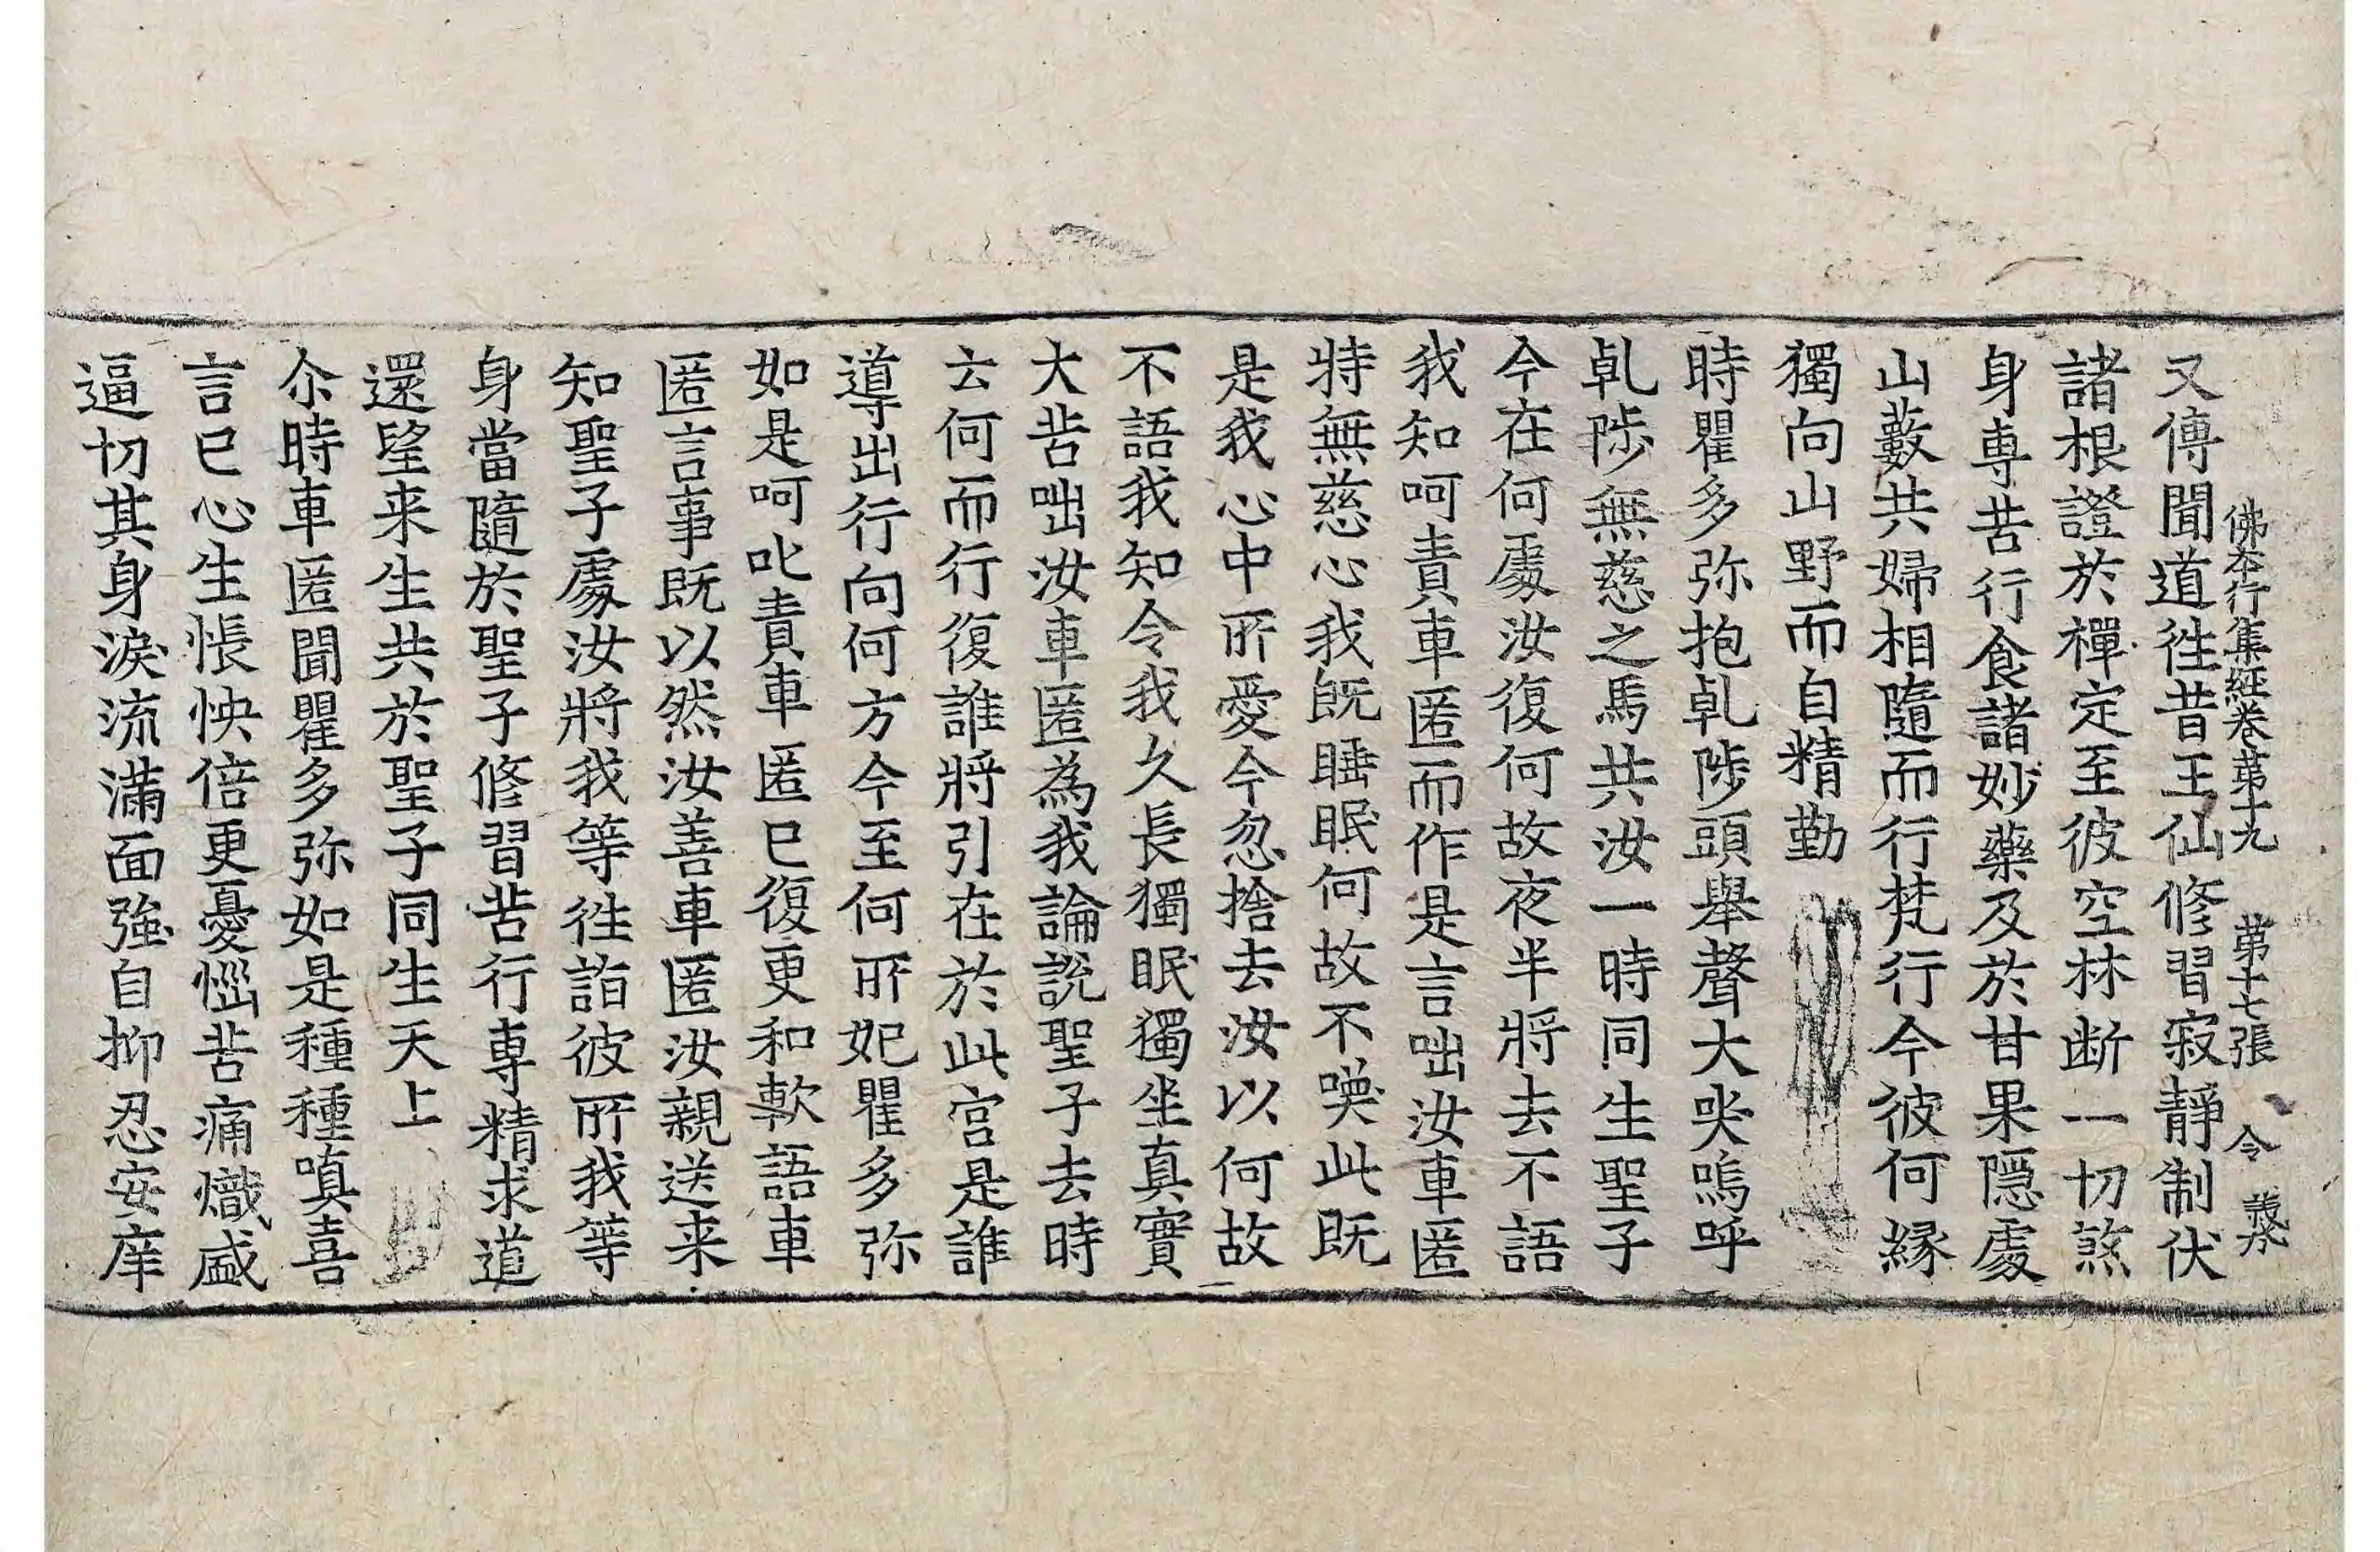 佛本行集経卷苐十九 苐十七張 令
又傳聞道徃昔王仙修習寂靜制伏
諸根證於禪定至彼空林断一切煞
身専苦行食諸妙藥及於甘果隠處
山藪共婦相隨而行梵行今彼何縁
獨向山野而自精勤
時瞿多弥抱乹陟頭舉聲大哭嗚呼
乹陟無慈之馬共汝一時同生聖子
今在何處汝復何故夜半將去不語
我知呵責車匿而作是言咄汝車匿
特無慈心我旣睡眠何故不喚此既
是我心中所愛今忽捨去汝以何故
不語我知令我久長獨眠獨坐真實
大苦咄汝車匿為我論說聖子去時
云何而行復誰將引在於此宫是誰
導出行向何方今至何所妃瞿多弥
如是呵叱責車匿已復更和軟語車
匿言事既以然汝善車匿汝親送来
知聖子處汝將我等徃詣彼所我等
身當隨於聖子修習苦行専精求道
還望来生共於聖子同生天上
尒時車匿聞瞿多弥如是種種嗔喜
言已心生悵怏倍更憂惱苦痛熾盛
逼切其身淚流滿面強自抑忍安庠